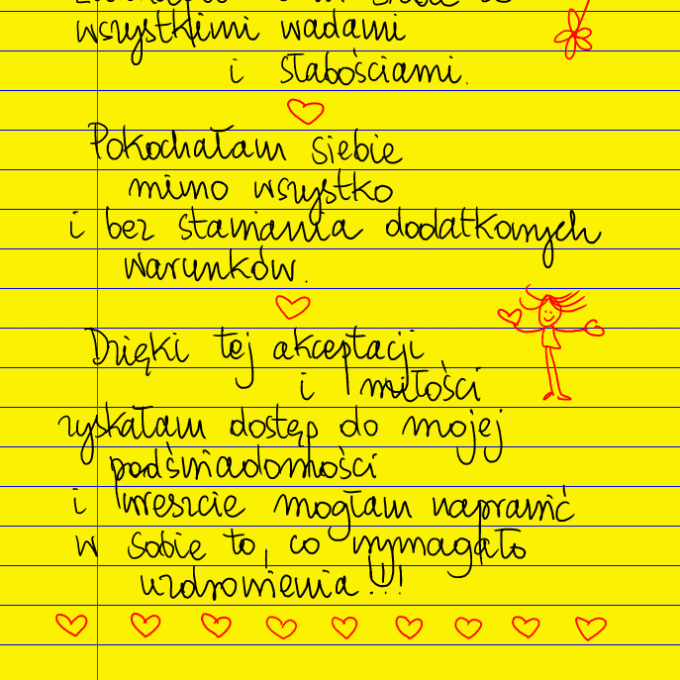 siebie ze
wszystkimi wadami
i słabościami.
Pokochałam siebie
mimo wszystko
i bez stawiania dodatkowych
warunków.
Dzięki tej akceptacji
i miłości
zyskałam dostęp do mojej
podświadomości
i wreszcie mogłam naprawić
w sobie to, co wymagało
uzdrowienia!!!